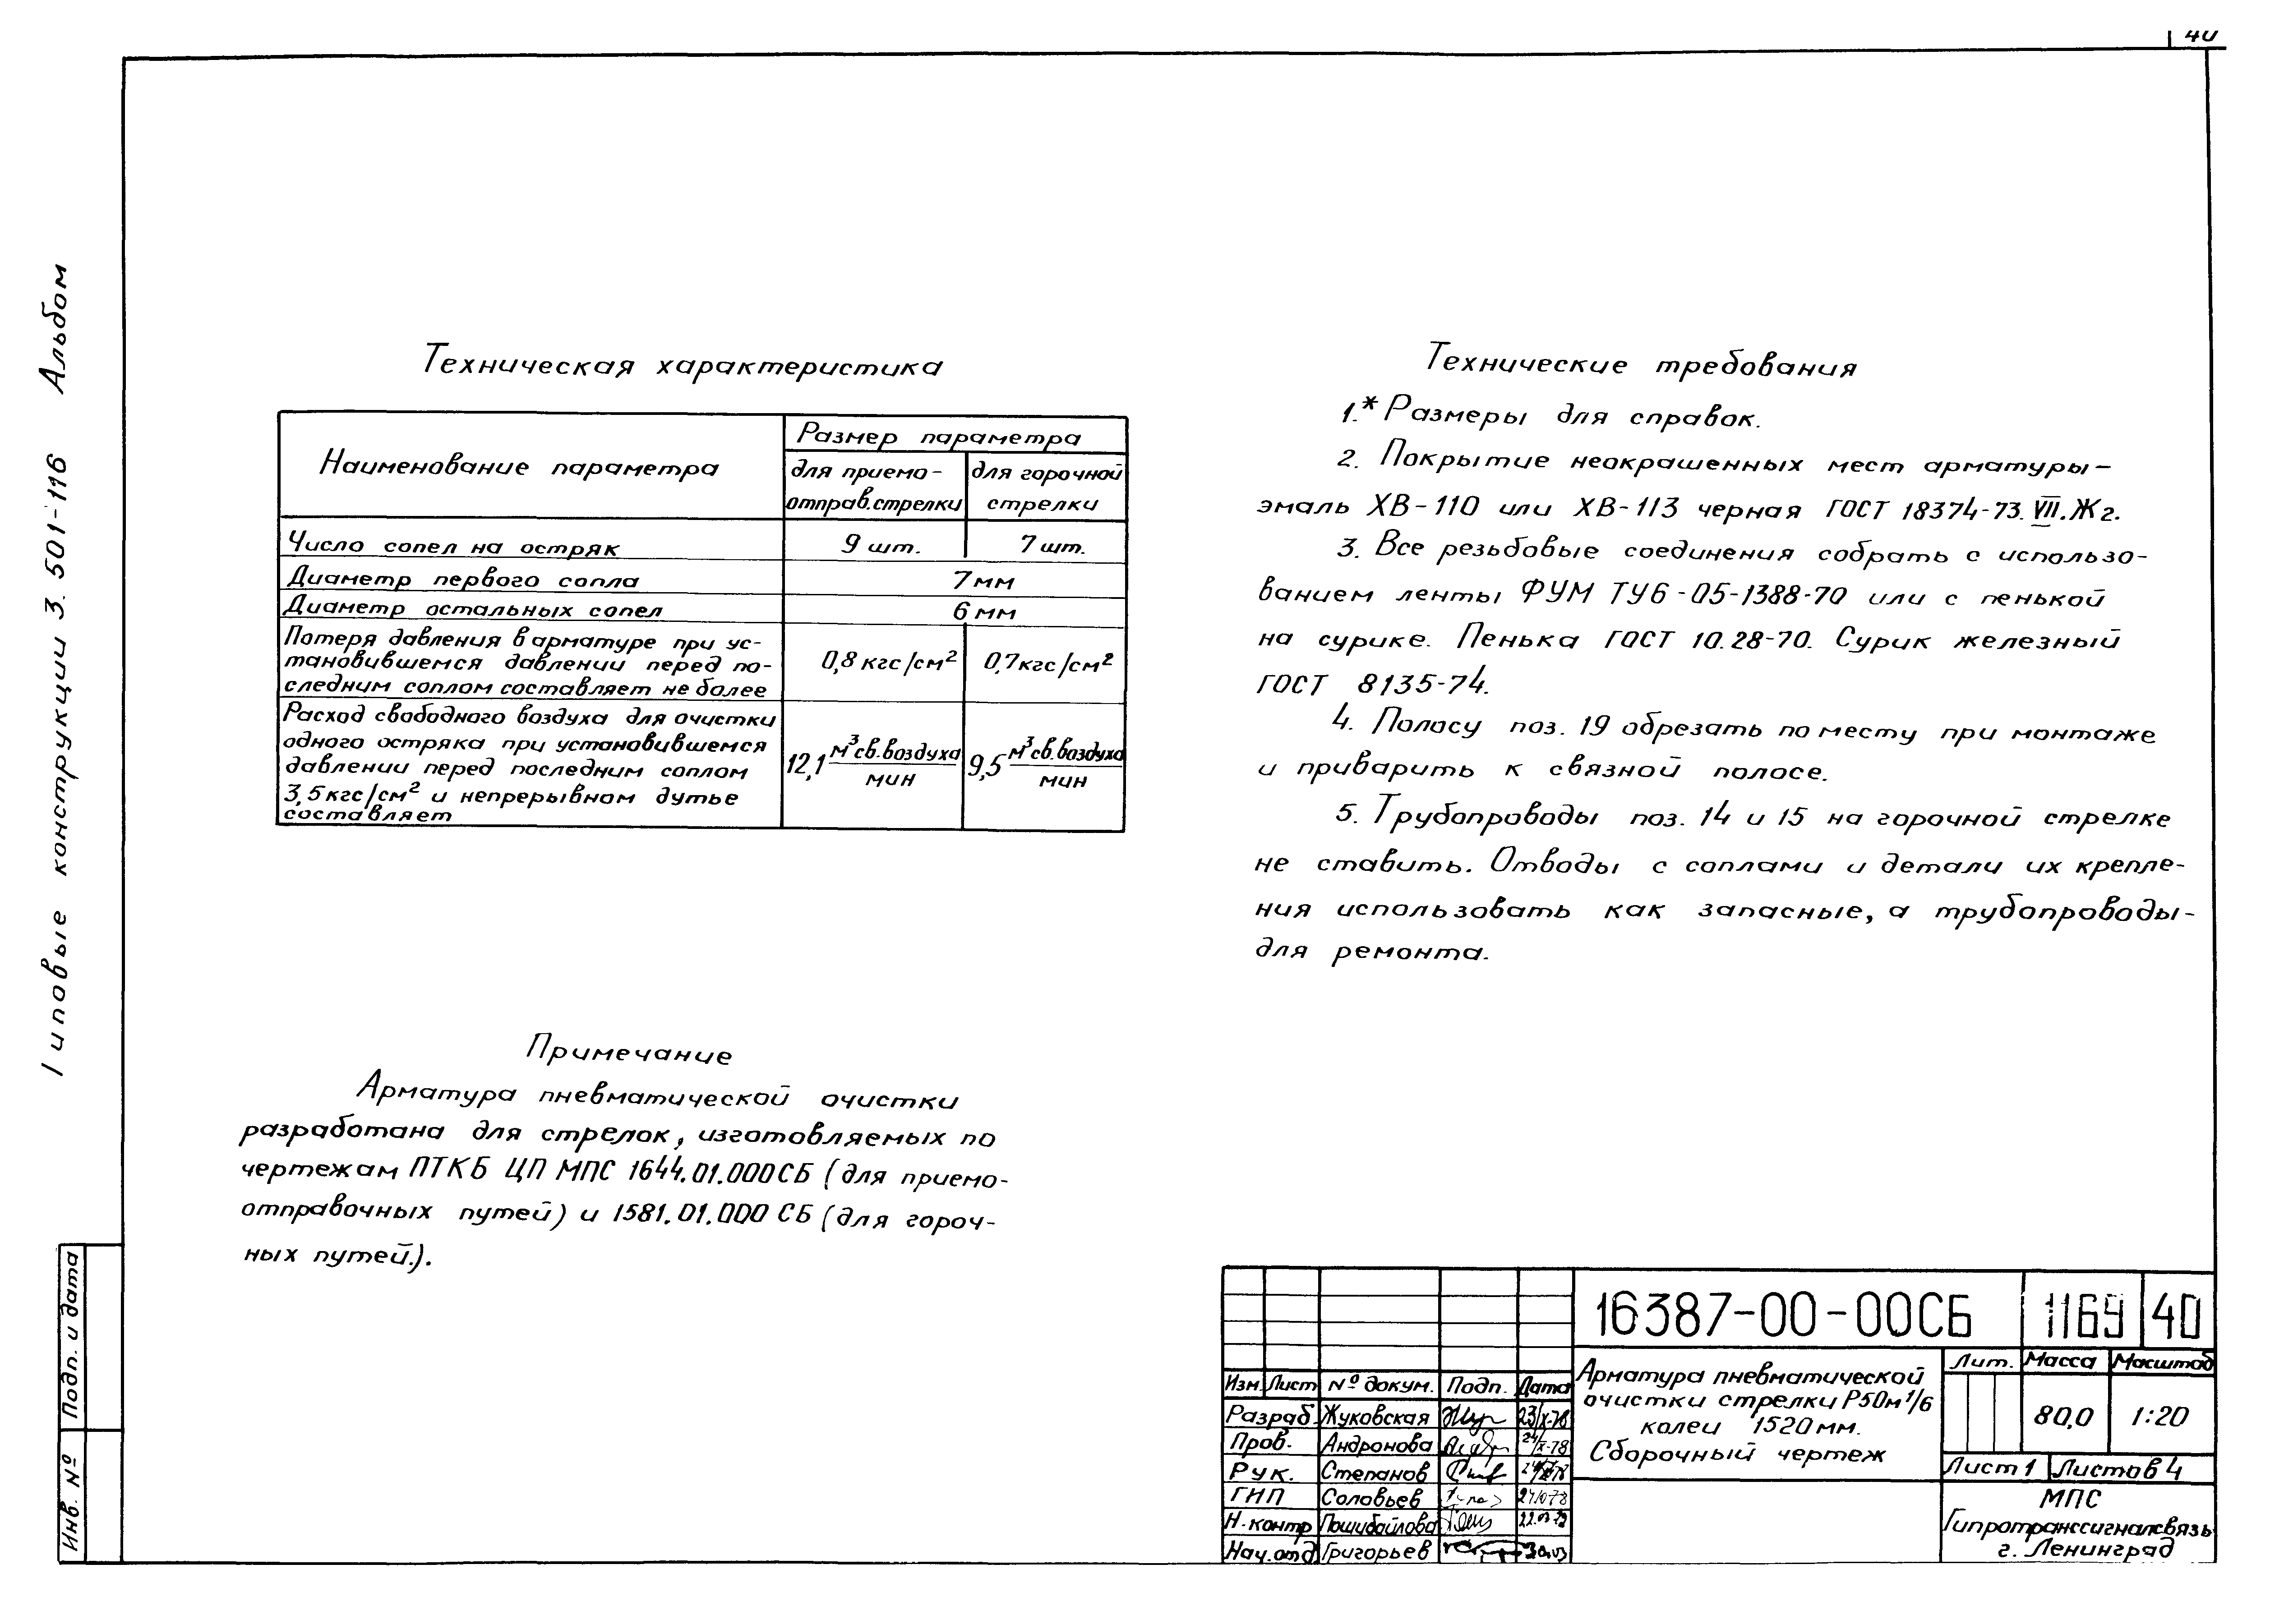 40
Типовые конструкции 3.501-116 Альбом
Техническая характеристика
Наименование параметра
Размер параметра
для приемо-
отправ.стрелки
для горочной
стрелки
Число сопел на остряк 9 шт. 7 шт.
Диаметр первого сопла 7 мм
Диаметр остальных сопел 6 мм
Потеря давления в арматуре при ус-
тановившемся давлении перед по-
следним соплом составляет не более
0,8 кгс/см² 0,7 кгс/см²
Расход свободного воздуха для очистки
одного остряка при установившемся
давлении перед последним соплом
3,5 кгс/см² и непрерывном дутье
составляет
12,1 м³ св.воздуха/мин 9,5 м³ св.воздуха/мин
Примечание
Арматура пневматической очистки
разработана для стрелок, изготовляемых по
чертежам ПТКБ ЦП МПС 1644.01.000СБ (для приемо-
отправочных путей) и 1581.01.000 СБ (для гороч-
ных путей.).
Технические требования
1.* Размеры для справок.
2. Покрытие неокрашенных мест арматуры-
эмаль ХВ-110 или ХВ-113 черная ГОСТ 18374-73. VII. Ж2.
3. Все резьбовые соединения собрать с использо-
ванием ленты ФУМ ТУ6-05-1388-70 или с пенькой
на сурике. Пенька ГОСТ 10.28-70. Сурик железный
ГОСТ 8135-74.
4. Полосу поз. 19 обрезать по месту при монтаже
и приварить к связной полосе.
5. Трубопроводы поз. 14 и 15 на горочной стрелке
не ставить. Отводы с соплами и детали их крепле-
ния использовать как запасные, а трубопроводы-
для ремонта.
Подп. и дата
Инв. №
16387-00-00СБ 1169 40
Изм. Лист № докум. Подп. Дата
Разраб. Жуковская 23/X-78
Пров. Андронова 24/X-78
Рук. Степанов
ГИП Соловьев 241078
Н.контр Пошибайлова
Нач.отд Григорьев
Арматура пневматической
очистки стрелки Р50м 1/6
колеи 1520 мм.
Сборочный чертеж
Лит. Масса Масштаб
80,0 1:20
Лист 1 Листов 4
МПС
Гипротранссигналсвязь
г. Ленинград